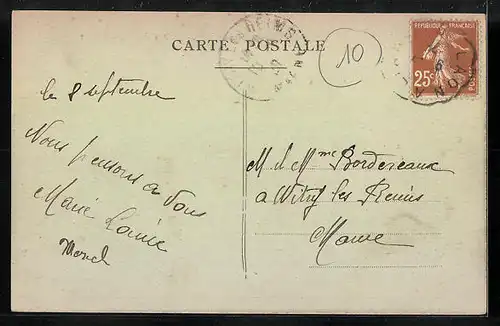 CARTE POSTALE
10
REPUBLIQUE FRANCAISE
25c
POSTES
LAON
REIMS
le 8 septembre
Nous pensons à Vous
Marie Louise
M. et Mme Bordereaux
à Witry les Reims
Marne